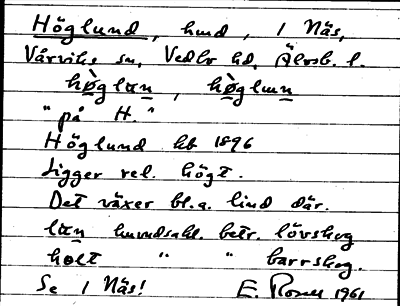 Höglund, hmd, 1 Näs,
Vårviks sn, Vedbo hd, Älvsb. l.
hø̀glun, hø̀glun
"på H."
Höglund hb 1896
Ligger rel. högt.
Det växer bl.a. lind där.
lun huvudsakl. betr. lövskog
holt " " barrskog.
Se 1 Näs! E. 1961